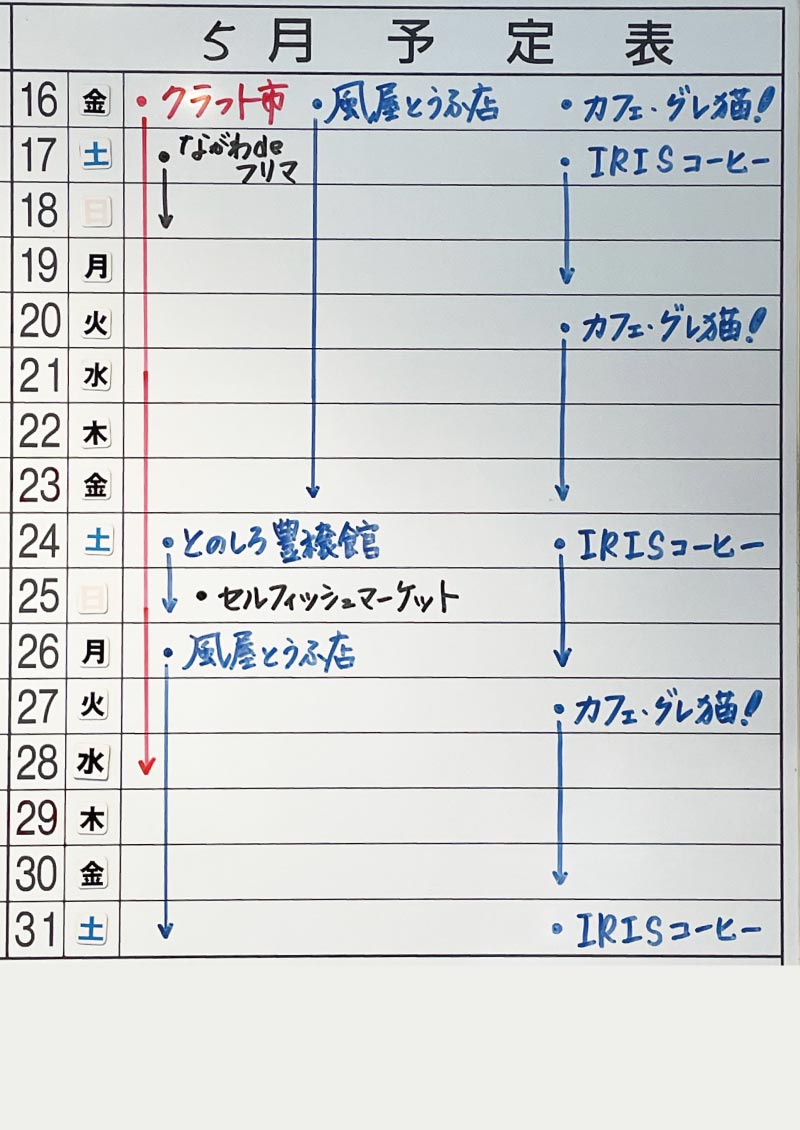 5月予定表
16 金 •クラフト市 •風屋とうふ店 •カフェ・グレ猫!
17 土 •ながわde •IRISコーヒー
フリマ
18 日
19 月
20 火 •カフェ・グレ猫!
21 水
22 木
23 金
24 土 •とのしろ豊穣館 •IRISコーヒー
25 日 •セルフィッシュマーケット
26 月 •風屋とうふ店
27 火 •カフェ・グレ猫!
28 水
29 木
30 金
31 土 •IRISコーヒー